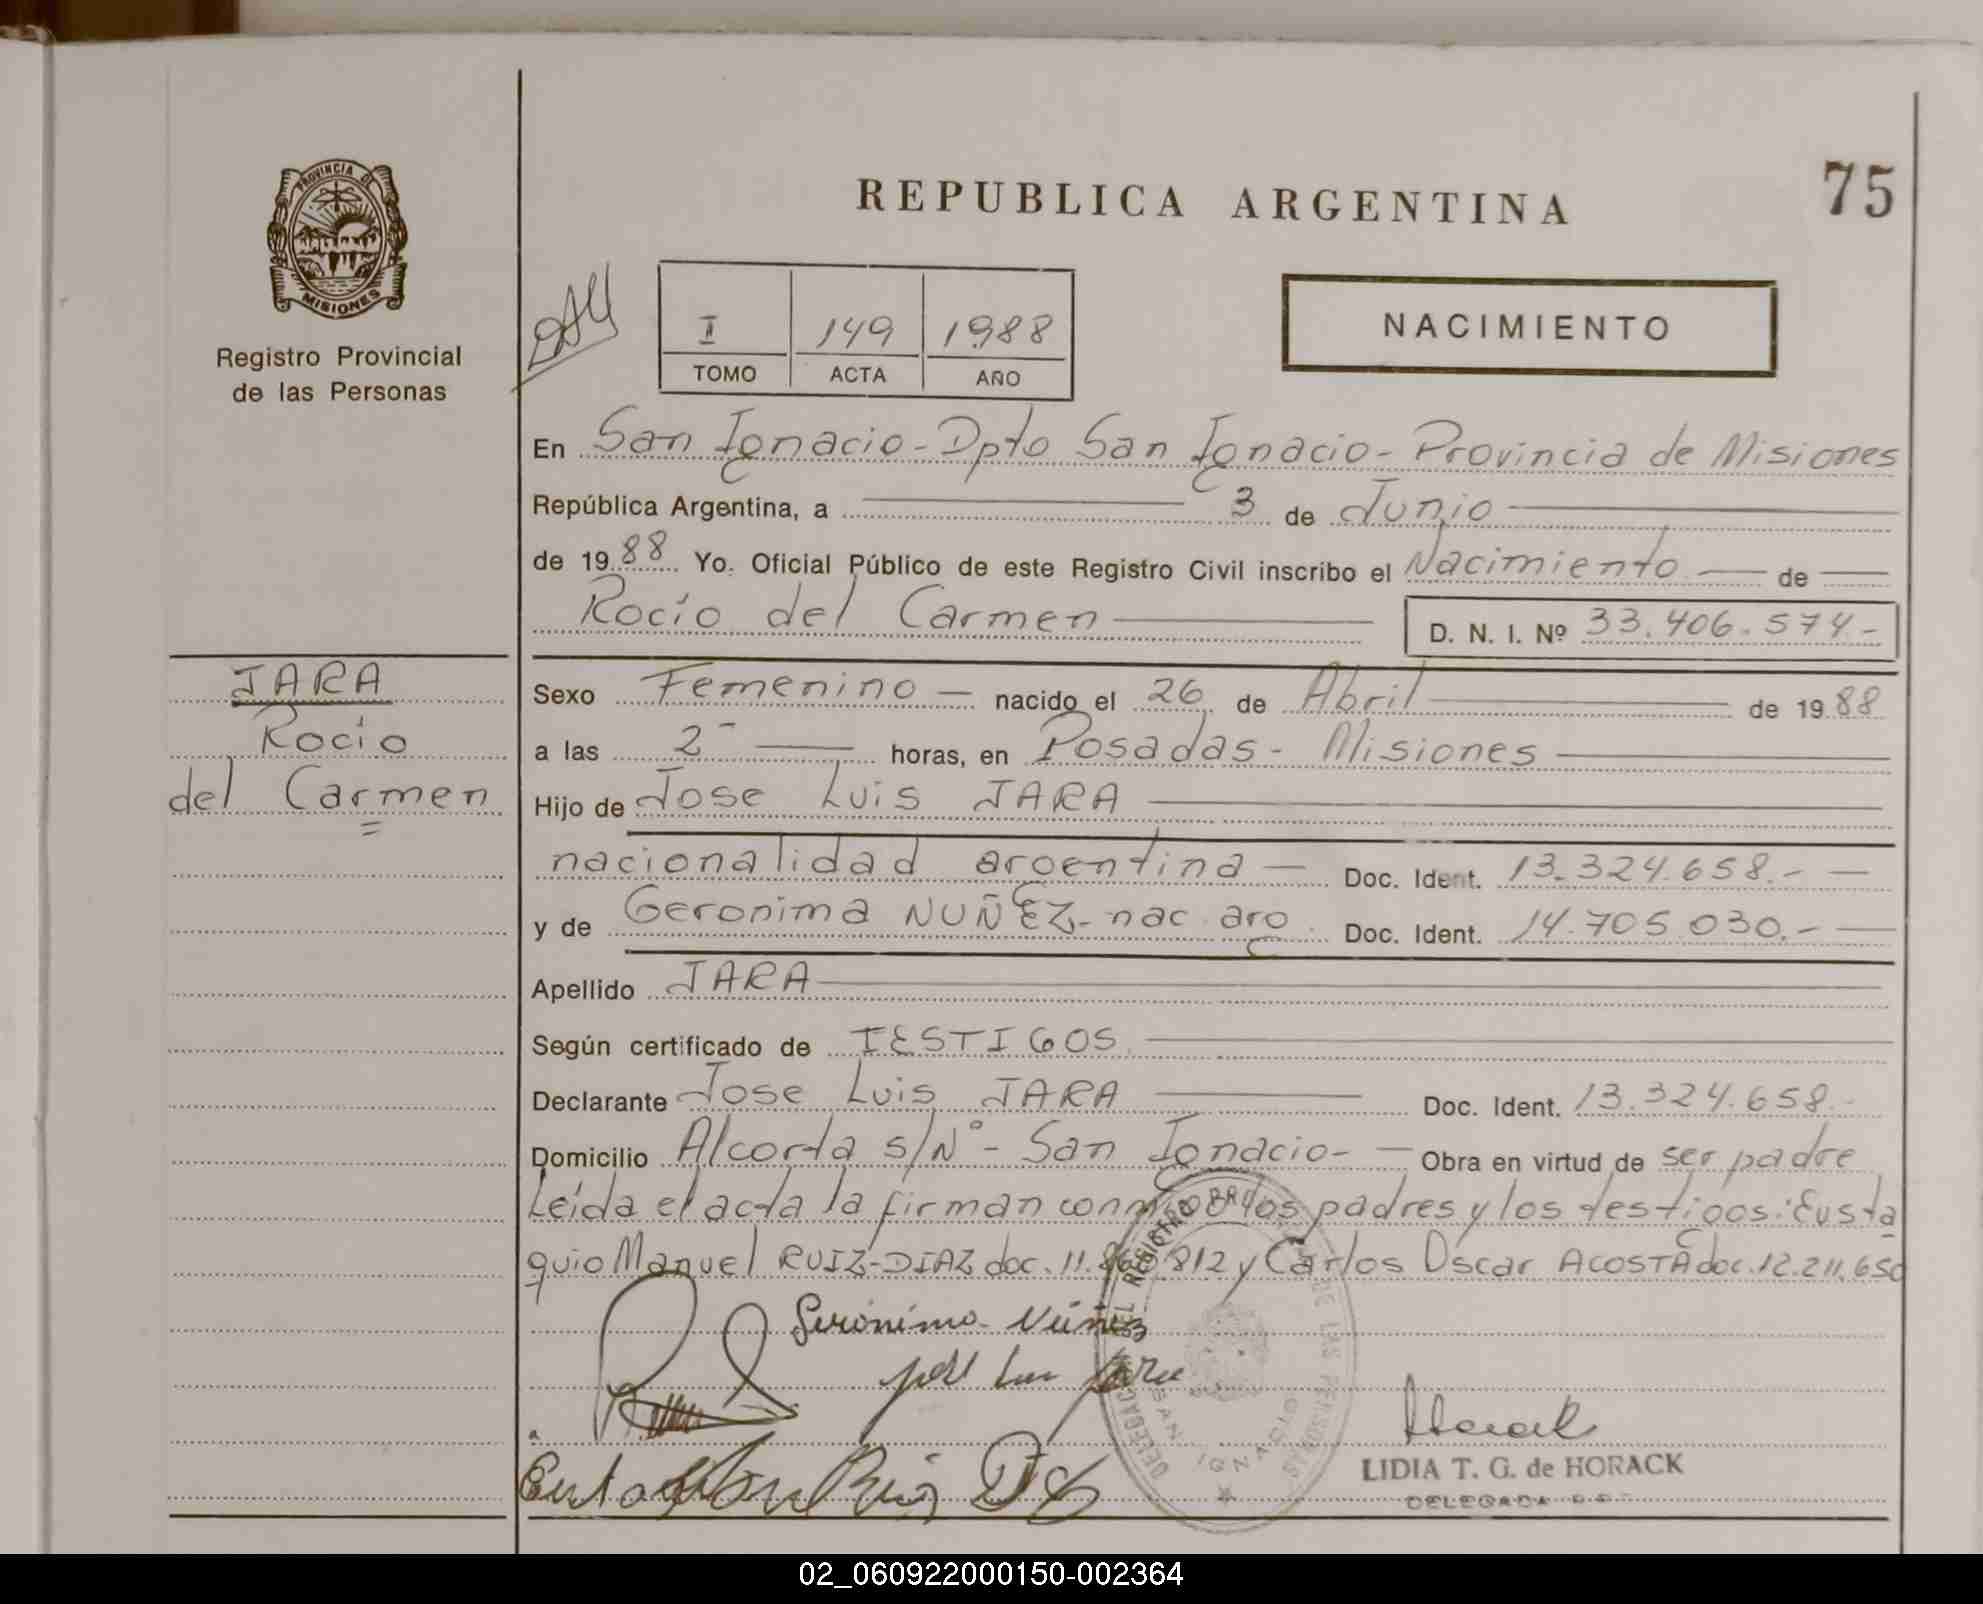 PROVINCIA DE
MISIONES
Registro Provincial
de las Personas
REPUBLICA ARGENTINA
75
I 149 1988
TOMO ACTA AÑO
NACIMIENTO
En San Ignacio - Dpto San Ignacio - Provincia de Misiones
República Argentina, a 3 de Junio
de 1988 Yo. Oficial Público de este Registro Civil inscribo el Nacimiento de
Rocío del Carmen D. N. I. Nº 33.406.574.-
JARA
Rocío
del Carmen
Sexo Femenino nacido el 26 de Abril de 1988
a las 2 horas, en Posadas - Misiones
Hijo de Jose Luis JARA
nacionalidad argentina Doc. Ident. 13.324.658.-
y de Geronima NUÑEZ - nac arg. Doc. Ident. 14.705.030.-
Apellido JARA
Según certificado de TESTIGOS
Declarante Jose Luis JARA Doc. Ident. 13.324.658.-
Domicilio Alcorta s/Nº - San Ignacio - Obra en virtud de ser padre
Leída el acta la firman conmigo los padres y los testigos: Eusta
quio Manuel RUIZ-DIAZ doc. 11. 812 y Carlos Oscar ACOSTA doc. 12.211.650
Gerónima Núñez
José Luis Jara
DELEGACION DEL REGISTRO PROVINCIAL DE LAS PERSONAS
SAN IGNACIO
Horack
LIDIA T. G. de HORACK
DELEGADA
02_060922000150-002364